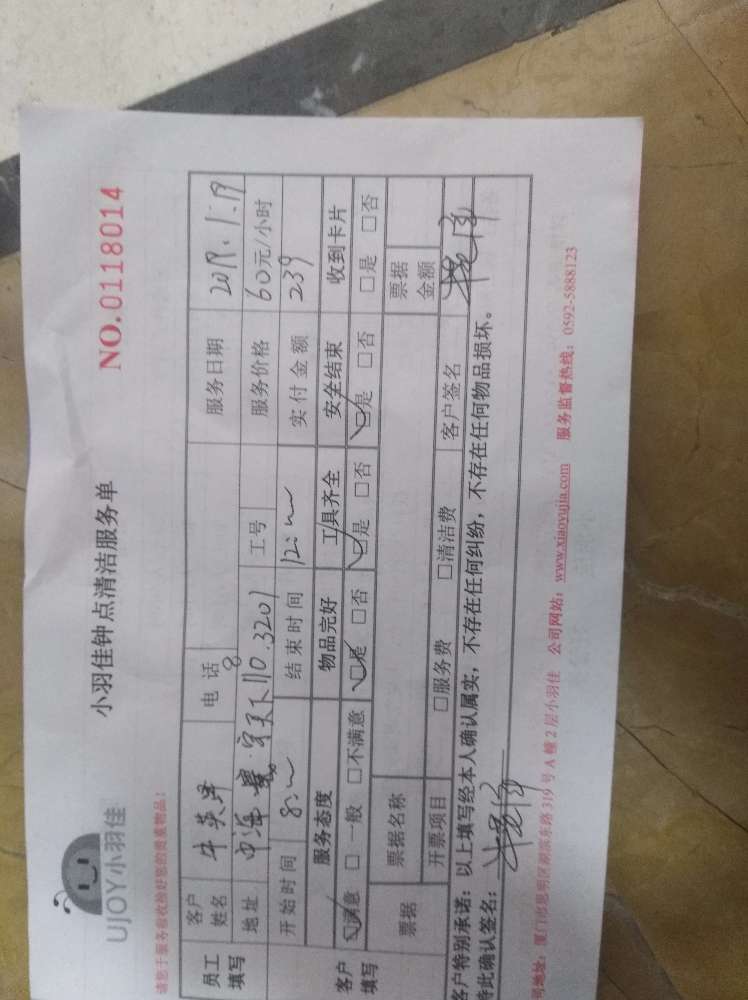 UJOY小羽佳
小羽佳钟点清洁服务单
NO.0118014
请您于服务前收拾好您的贵重物品:
员工填写 客户姓名 牛英 电话 服务日期
地址 中海 寰宇天下110.3201 工号 服务价格 60元/小时
开始时间 8: 结束时间 12: 实付金额 239
客户填写 服务态度 物品完好 工具齐全 安全结束 收到卡片
☑满意 □一般 □不满意 ☑是 □否 ☑是 □否 ☑是 □否 □是 □否
票据 票据名称 票据金额
开票项目 □服务费 □清洁费 客户签名
客户特别承诺:以上填写经本人确认属实,不存在任何纠纷,不存在任何物品损坏。
特此确认签名:
司地址:厦门市思明区湖滨东路319号A幢2层小羽佳 公司网站:www.xiaoyujia.com 服务监督热线:0592-5888123